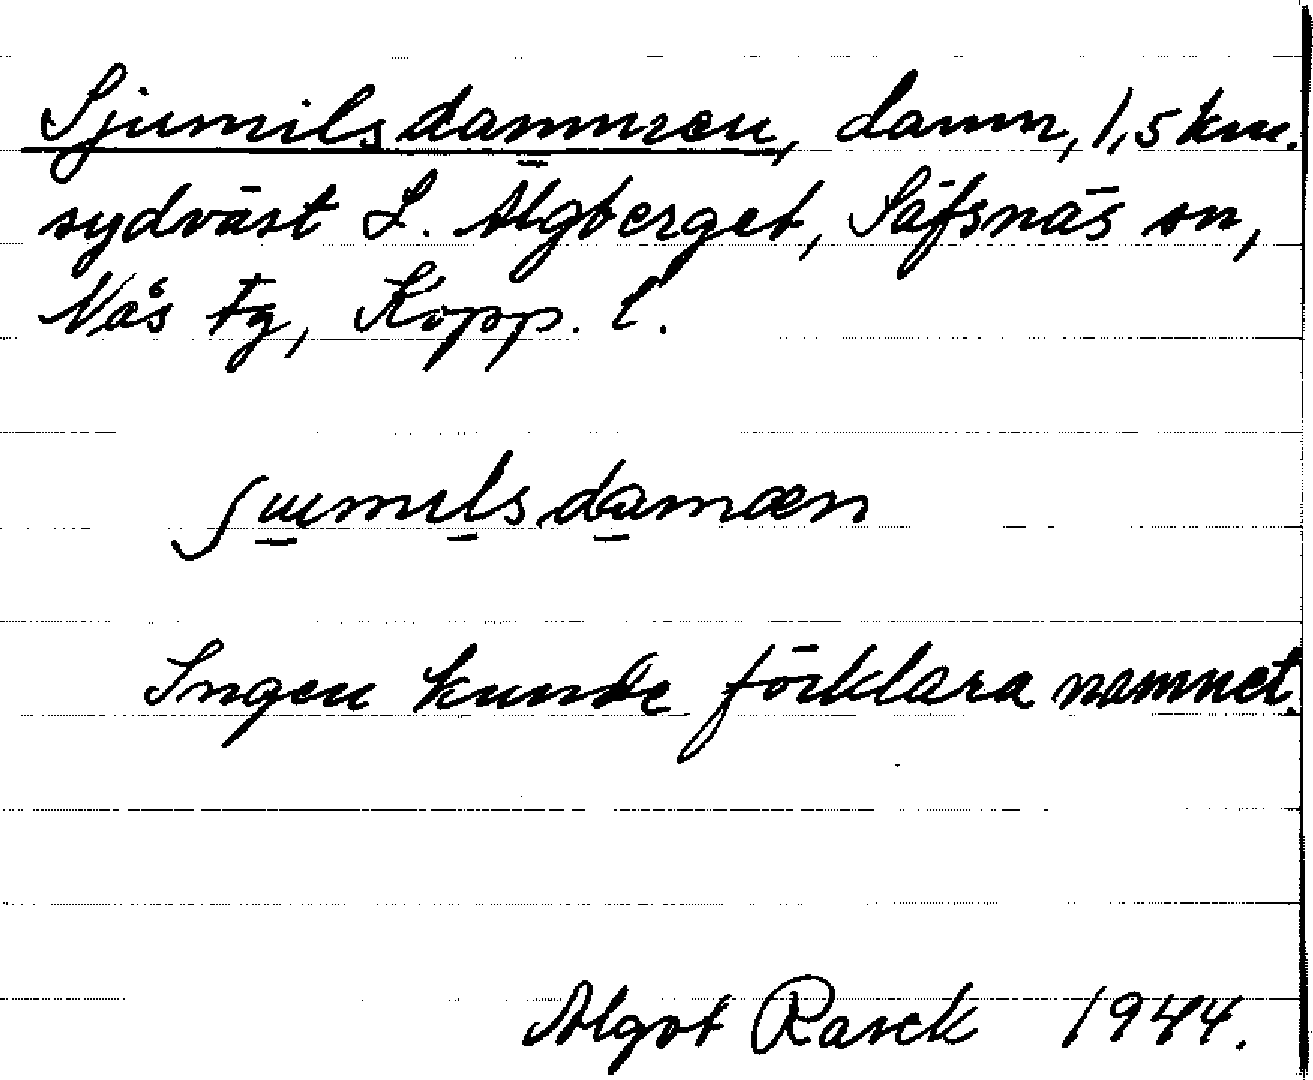 Sjumilsdammen, damm, 1,5 km.
sydväst L. Älgberget, Säfsnäs sn,
Nås tg, Kopp. l.
ʃɯmɩlsdamæn
Ingen kunde förklara namnet.
Algot Rasck 1944.